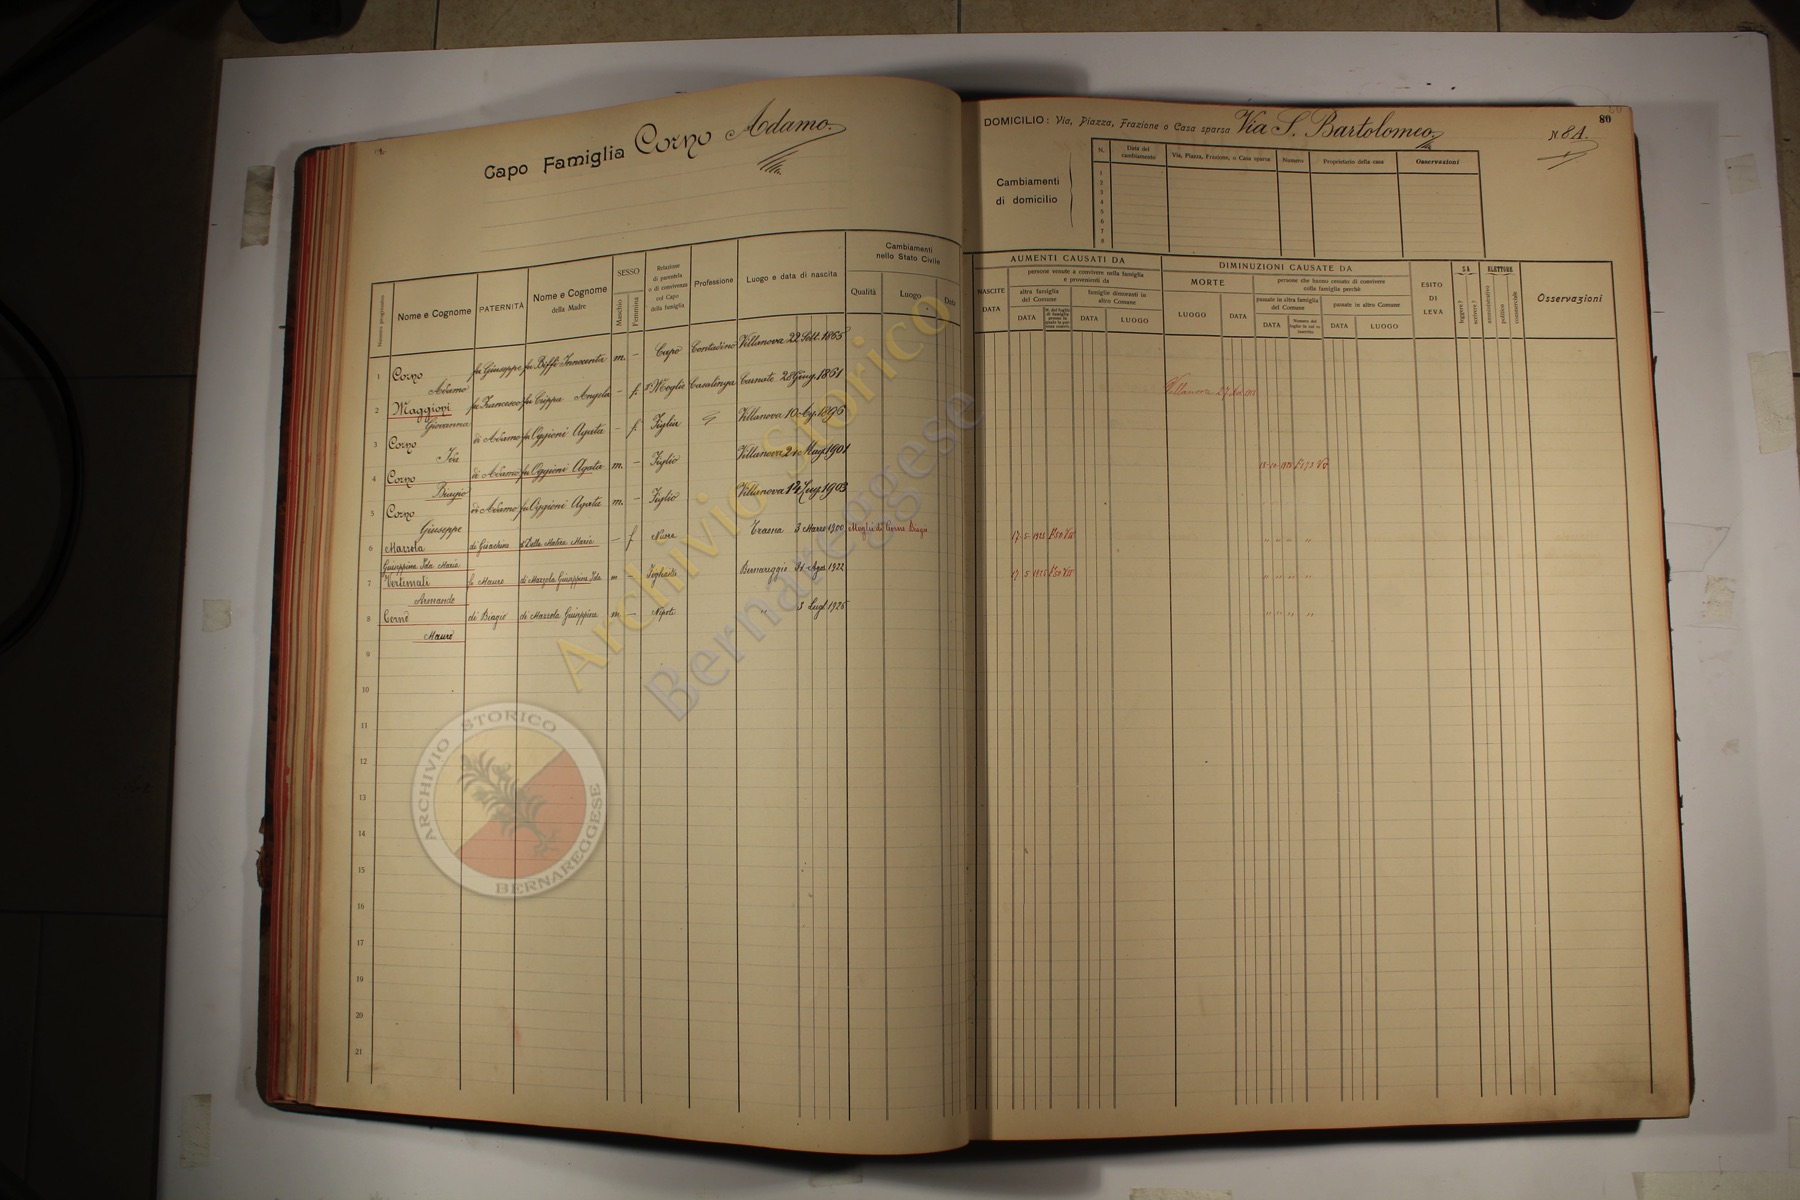 Capo Famiglia Corno Adamo.
DOMICILIO: Via, Piazza, Frazione o Casa sparsa Via S. Bartolomeo
N. 8A.
80
Cambiamenti
di domicilio
N.
Data del cambiamento
Via, Piazza, Frazione, o Casa sparsa
Numero
Proprietario della casa
Osservazioni
1
2
3
4
5
6
7
8
Numero progressivo
Nome e Cognome
PATERNITÀ
Nome e Cognome della Madre
SESSO
Maschio
Femmina
Relazione di parentela o di convivenza col Capo della famiglia
Professione
Luogo e data di nascita
Cambiamenti nello Stato Civile
Qualità
Luogo
Data
AUMENTI CAUSATI DA
NASCITE
DATA
persone venute a convivere nella famiglia e provenienti da
altra famiglia del Comune
DATA
famiglie dimoranti in altro Comune
DATA
LUOGO
DIMINUZIONI CAUSATE DA
MORTE
LUOGO
DATA
persone che hanno cessato di convivere nella famiglia perchè
passate in altra famiglia del Comune
DATA
passate in altro Comune
DATA
LUOGO
ESITO DI LEVA
SA
leggere?
scrivere?
ELETTORE
amministrativo
politico
commerciale
Osservazioni
1 Corno Adamo fu Giuseppe fu Biffi Innocenta m. – Capo Contadino Villanova 22 Sett. 1865
2 Maggioni Giovanna fu Francesco fu Crippa Angela – f. 2ª Moglie Casalinga Carnate 28 Giug. 1851 Villanova
3 Corno Ida di Adamo fu Oggioni Agata – f. Figlia Villanova 10 Ag. 1896
4 Corno Biagio di Adamo fu Oggioni Agata m. – Figlio Villanova 24 Mag. 1901
5 Corno Giuseppe di Adamo fu Oggioni Agata m. – Figlio Villanova 14 Lug. 1903
6 Mazzola Giuseppina Ida Maria di Gioachino Maria – f Nuora 3 Marzo 1900 Moglie di Corno Biagio 17 5 1925
7 Vertemati Armando di Mauro di Mazzola Giuseppina Ida m – Bernareggio 31 Ago. 1922 17 5 1925
8 Corno Mauro di Biagio di Mazzola Giuseppina m – Nipote " 3 Lugl. 1925
9
10
11
12
13
14
15
16
17
18
19
20
21
Archivio Storico
Bernareggese
ARCHIVIO STORICO
BERNAREGGESE